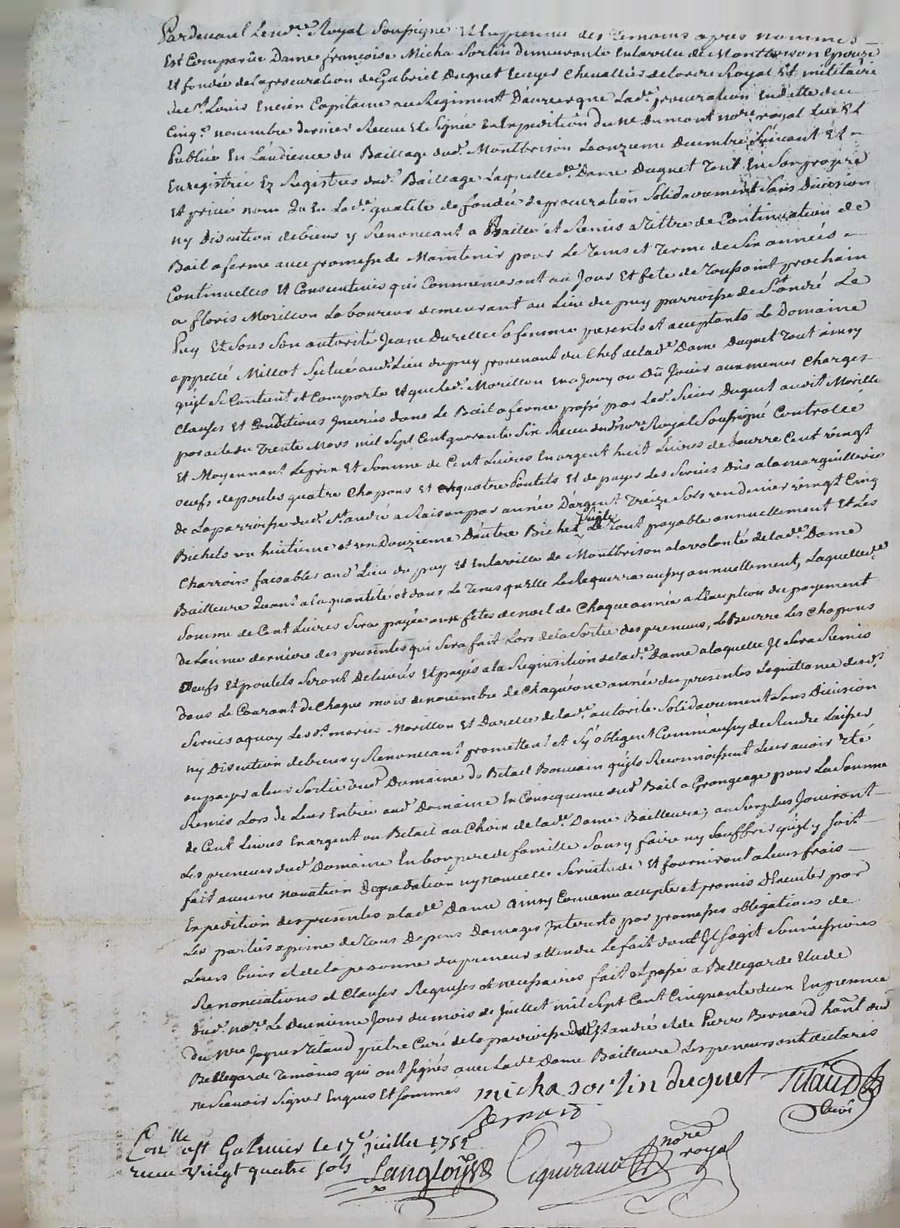 Pardevant Le no.re Royal Soussigné Et En presence des Temoins apres nommés
Est Comparüe Dame françoise Micha Sorlin demeurante En la ville de Montbrison Epouze
Et fondée de la procuration de Gabriel Duguet Ecuyer Chevallier de lordre Royal Et militaire
de St Louis Encien Capitaine au Regiment Dauvergne Lad.e procuration En datte du
Cinq.e novembre dernier Receu Et Signée En Expedition du Me Dumont no.re royal Lue Et
Publiée En Laudience du Baillage dud. Montbrison Le onzieme Decembre Suivant Et
Enregistrée Ez Registres dud. Baillage Laquelle d.e Dame Duguet Tout En Son propre
Et privé nom qu En Lad.e qualité de fondée de procuration Solidairement Sans Division
ny Discution de biens y Renonceant a Baillé Et Remis a Tittre de Continuation de
Bail a ferme avec promesse de Maintenir pour Le Tems Et Terme de Six années
Continuelles Et Consecutives qui Commenceront au Jour Et fete de Toussaint prochain
a floris Morillon Laboureur demeurant au Lieu du puy parroisse de St andré Le
Puy Et Sous Son autorité Jeane Durelle Sa femme presents et acceptants Le Domaine
appellé Millot Situé aud. Lieu du puy provenant du Chef de lad.e Dame Duguet Tout ainsy
quil Se Contient et Comporte Et que led. Morillon En a Jouy ou Dû Jouir aux memes Charges
Clauses Et Conditions Inserés dans Le Bail a ferme passé par Led. Sieur Duguet audit Morillon
par acte du Trente Mars mil Sept Cent quarante Six Receu no.re Royal Soussigné Controllé
Et Moyennant Le prix Et Somme de Cent Livres En argent huit Livres de beurre Cent vingt
oeufs de poules quatre Chapons Et quatre Poulets Et de payer Les Servis Dûs a la marguillerie
de La parroisse dud. St andré a Raison par année D'argent Treize Sols un denier vingt Cinq
Bichets un huitieme et un Douzieme D'autre Bichet Seigle Le Tout payable annuellement Et Les
Charrois faisables aud. Lieu du puy Et En la ville de Montbrison a la volonté de lad.e Dame
Bailleure Quant a la quantité et dans Le Tems qu'elle Le Requerra aussy annuellement, Laquelle d.e
Somme de Cent Livres Sera payée aux fêtes de noel de Chaque année a L'exeption du payement
de L'année derniere des presentes qui Sera fait Lors de la Sortie des preneurs, Le Beurre Les Chapons
Oeufs Et poulets Seront Delivrés Et payés a la Requisition de lad.e Dame a laquelle Il Sera Remis
dans Le Courant de Chaque mois de novembre de Chaqu'une année des presentes La quittance desd.
Servis a quoy Les d. mariés Morillon Et Durelle de lad.e autorité Solidairement Sans Division
ny Discution de biens y Renonceant promettent Et S'y obligent Comm'aussy de Rendre Laisser
ou payer a leur Sortie dud. Domaine du Betail Bouvain quils Reconnoissent Leur avoir Eté
Remis Lors de Leur Entrée aud. Domaine En Consequence dud. Bail a Grangeage pour La Somme
de Cent Livres En argent ou Betail au Choix de lad.e Dame Bailleure, au Surplus Jouiront
Les preneurs dud. Domaine En bon pere de famille Sans y faire ny Souffrir quil y Soit
fait aucune novation Degradation ny nouvelles Servitudes Et fourniront a Leurs frais
Expedition des presentes a lad.e Dame ainsy Convenu accepté et promis D'executer par
Les parties a peine de Tous Depens Domages Interests par promesses obligations de
Leurs biens et de la personne du preneur attendu Le fait dont Il S'agit Soumissions
Renonciations et Clauses Requises et necessaires fait et passé a Bellegarde Etude
dud. no.re Le deuxieme Jour du mois de Juillet mil Sept Cent Cinquante deux En presence
du Mre Jaques Titaud prêtre Curé de la parroisse de St andré et de Pierre Bernard hant dud.
Bellegarde Temoins qui ont Signés avec Lad.e Dame Bailleure Les preneurs ont declarés
ne Scavoir Signer Enquis Et Sommés
micha sorlin duguet
Titaud
Curé
Bernard
Con.lle a St Galmier le 17.e juillet 1752
receu vingt quatre sols
Langloys
no.re
royal